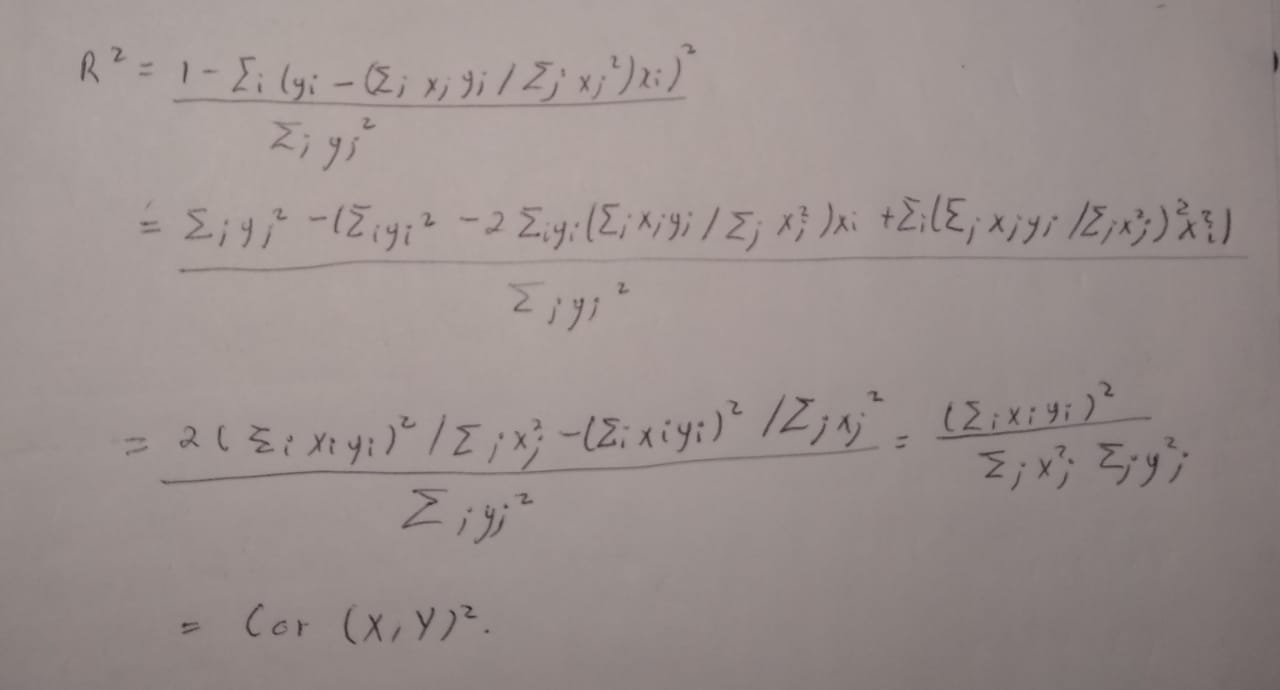 R² = (1 - Σᵢ (yᵢ - (Σⱼ xⱼ yⱼ / Σⱼ xⱼ²) xᵢ)²) / (Σⱼ yⱼ²)
= (Σⱼ yⱼ² - (Σᵢ yᵢ² - 2 Σᵢ yᵢ (Σⱼ xⱼ yⱼ / Σⱼ xⱼ²) xᵢ + Σᵢ (Σⱼ xⱼ yⱼ / Σⱼ xⱼ²)² xᵢ²)) / (Σⱼ yⱼ²)
= (2 (Σᵢ xᵢ yᵢ)² / Σⱼ xⱼ² - (Σᵢ xᵢ yᵢ)² / Σⱼ xⱼ²) / (Σⱼ yⱼ²) = (Σᵢ xᵢ yᵢ)² / (Σⱼ xⱼ² Σⱼ yⱼ²)
= Cor (X, Y)².